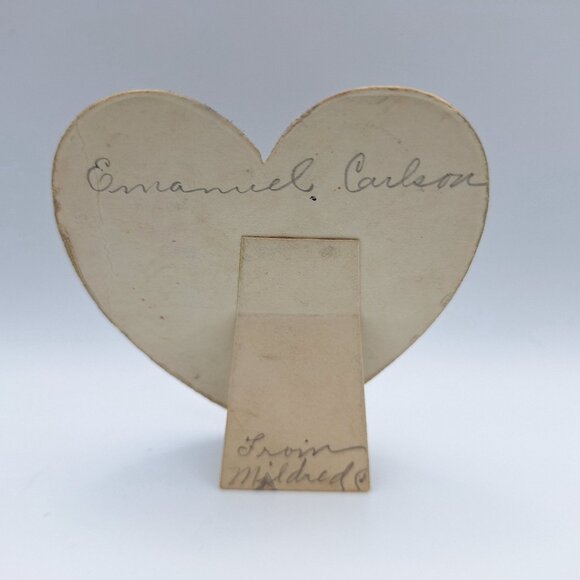 Emanuel Carlson
From
Mildred C